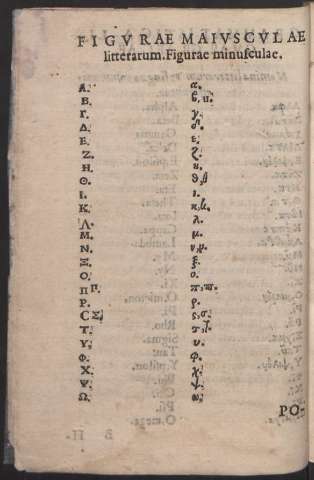 FIGVRAE MAIVSCVLAE
litterarum. Figurae minusculae.
Α. α.
Β. β, ϐ.
Γ. γ.
Δ. δ.
Ε. ε.
Ζ. ζ.
Η. η.
Θ. ϑ, θ
Ι. ι.
Κ. κ, &.
Λ. λ.
Μ. μ.
Ν. ν, μ.
Ξ. ξ.
Ο. ο.
Π Π. π, ϖ.
Ρ. ρ.
C Σ. ς, σ.
Τ. τ, 7.
Υ. υ.
Φ. φ.
Χ. χ.
Ψ. ψ.
Ω. ω.
PO-